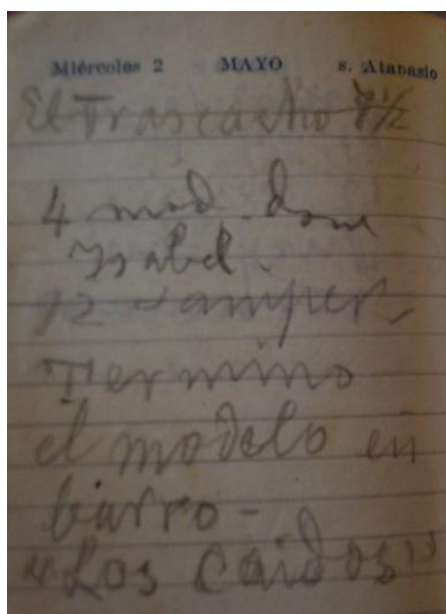 Miércoles 2 MAYO s. Atanasio
El Trascacho 7½
4 mod. dome
Ysabel.
12 Samper-
Termino
el modelo en
barro-
"Los Caidos"